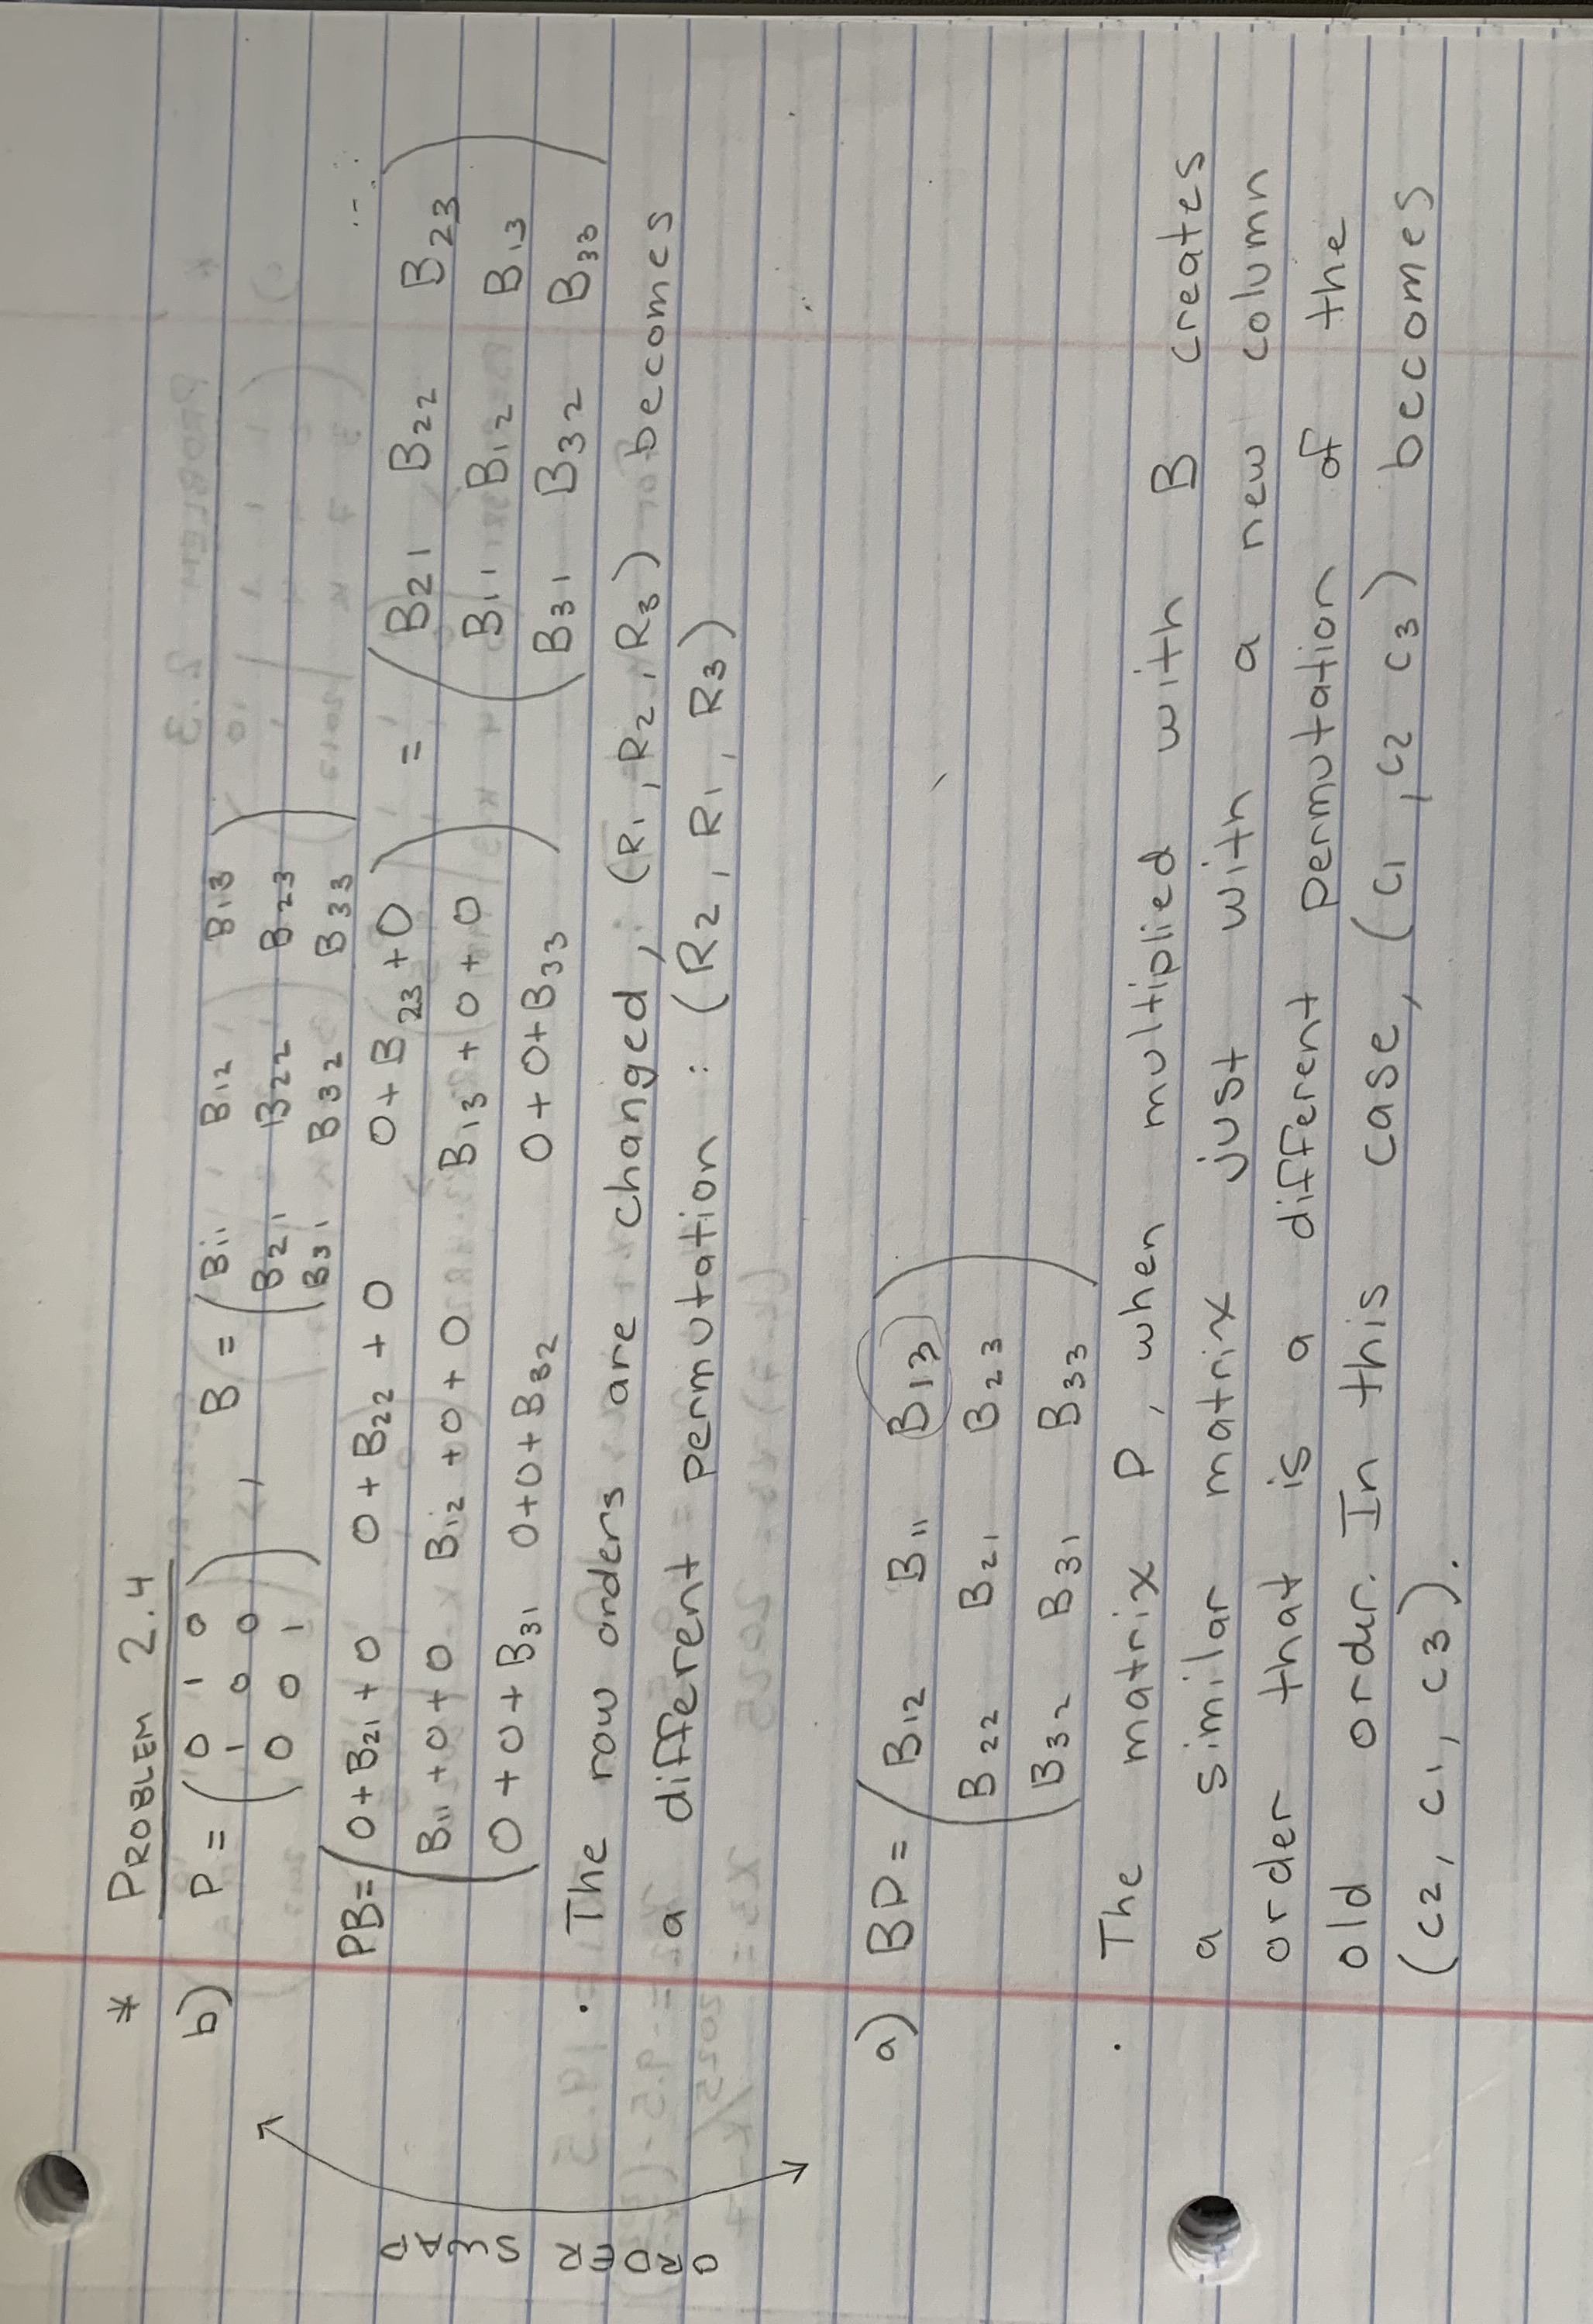 * PROBLEM 2.4
b) P = ( 0 1 0 , B = ( B11 B12 B13
1 0 0 B21 B22 B23
0 0 1 ) B31 B32 B33 )
PB = ( 0 + B21 + 0 0 + B22 + 0 0 + B23 + 0 = ( B21 B22 B23
B11 + 0 + 0 B12 + 0 + 0 B13 + 0 + 0 B11 B12 B13
0 + 0 + B31 0 + 0 + B32 0 + 0 + B33 ) B31 B32 B33 )
· The row orders are changed, (R1, R2, R3) becomes
a different permutation : (R2, R1, R3)
ORDER SWAP
a) BP = ( B12 B11 B13
B22 B21 B23
B32 B31 B33 )
· The matrix P, when multiplied with B creates
a similar matrix just with a new column
order that is a different permutation of the
old order. In this case, (C1, C2 C3) becomes
(C2, C1, C3).